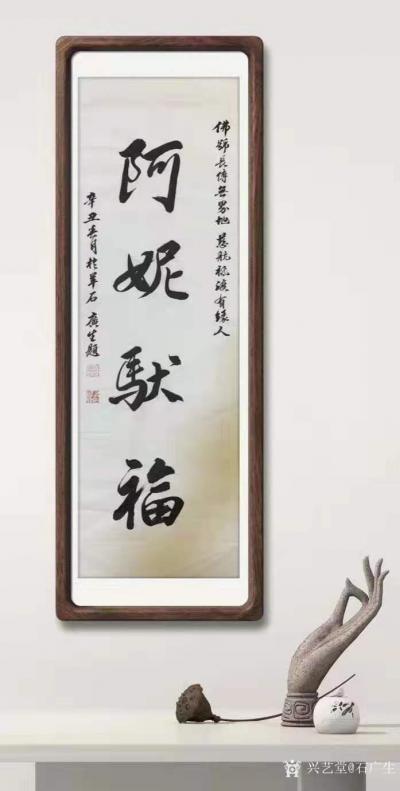 佛號長傳無界地 慈航渡有緣人
阿妮馱福
辛丑春月於石 廣生題
兴艺堂@石广生